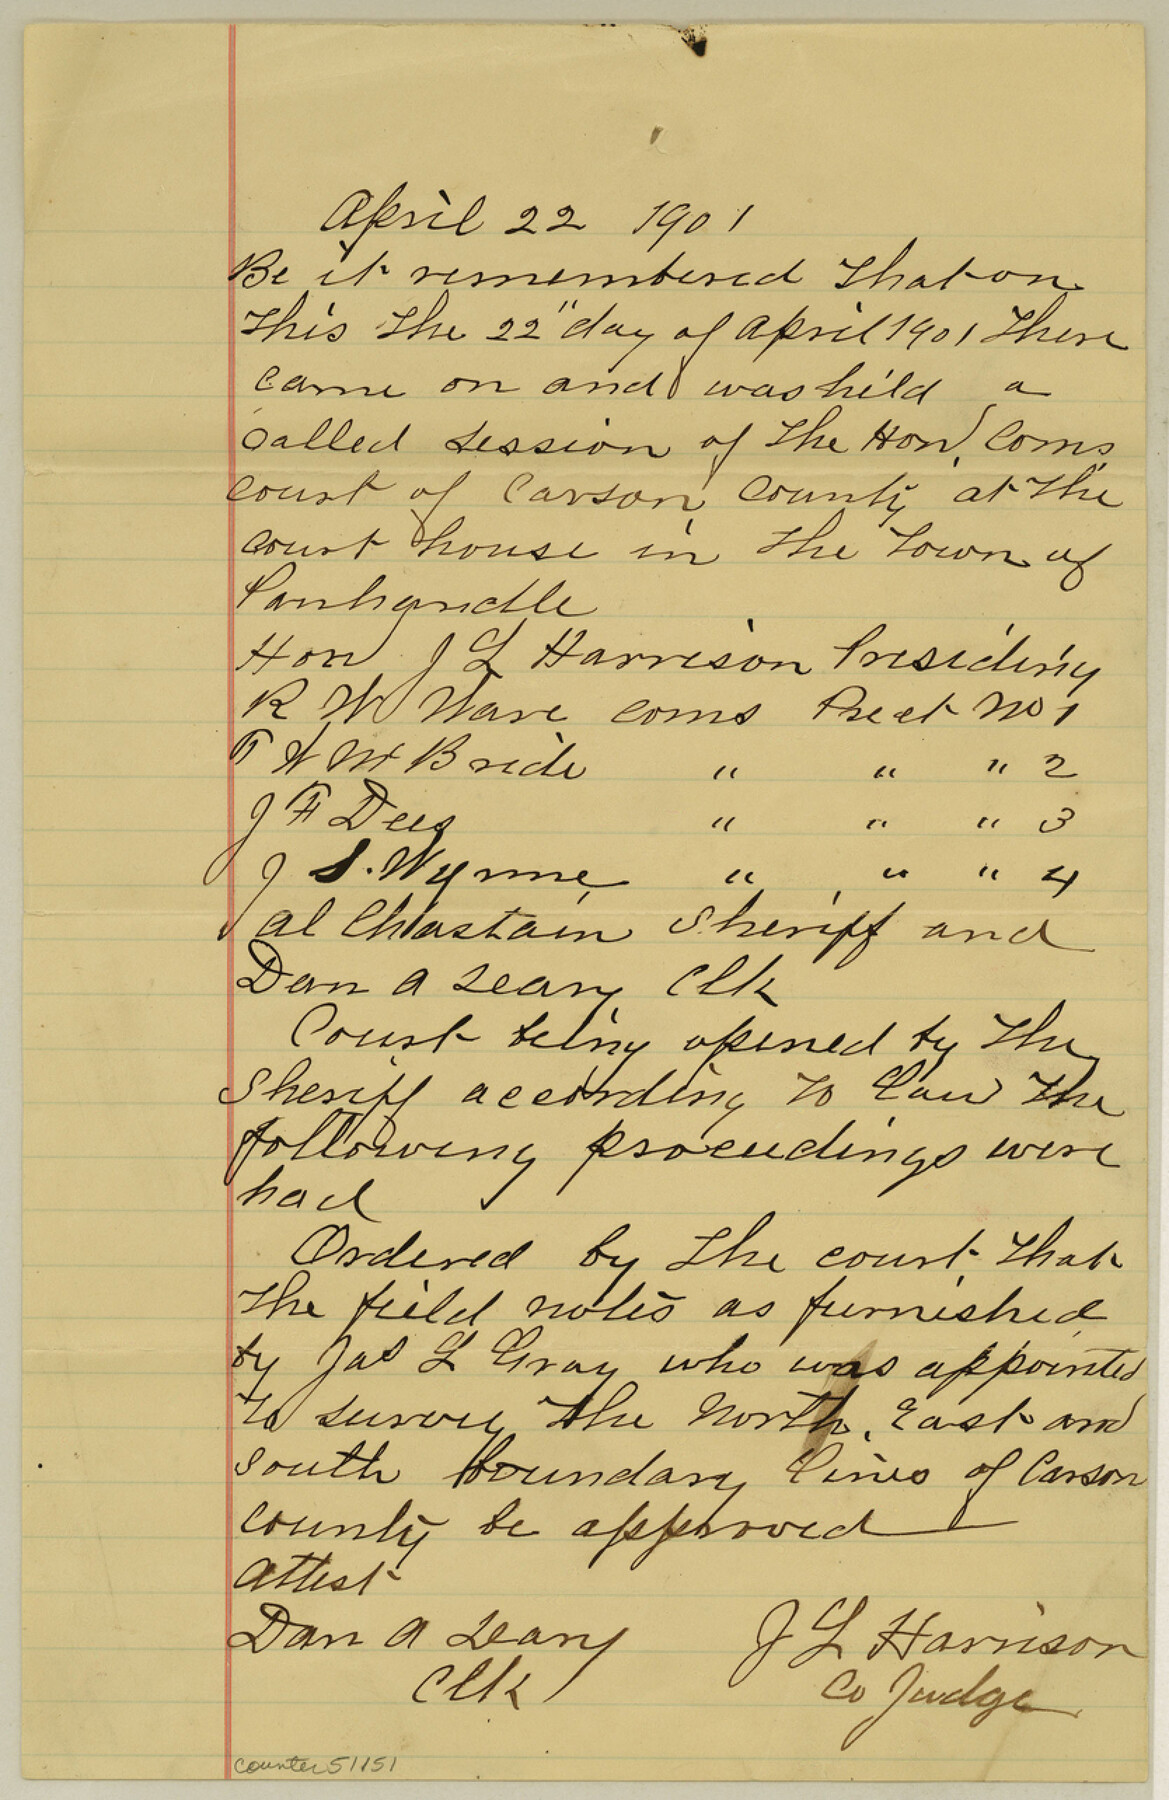 April 22 1901
Be it remembered that on
this the 22" day of April 1901 there
came on and was held a
called session of the Hon. Coms
court of Carson County at the
court house in the Town of
Panhandle
Hon J L Harrison Presiding
R W Ware coms Prect No 1
T W McBride " " " 2
J F Dees " " " 3
J S. Wynne " " " 4
Al Chastain Sheriff and
Dan A Leary Clk
Court being opened by the
Sheriff according to law the
following proceedings were
had
Ordered by the court that
the field notes as furnished
by Jas L Gray who was appointed
to survey the North, East and
South boundary lines of Carson
county be approved
Attest
Dan A Leary J L Harrison
Clk Co Judge
counter 51151